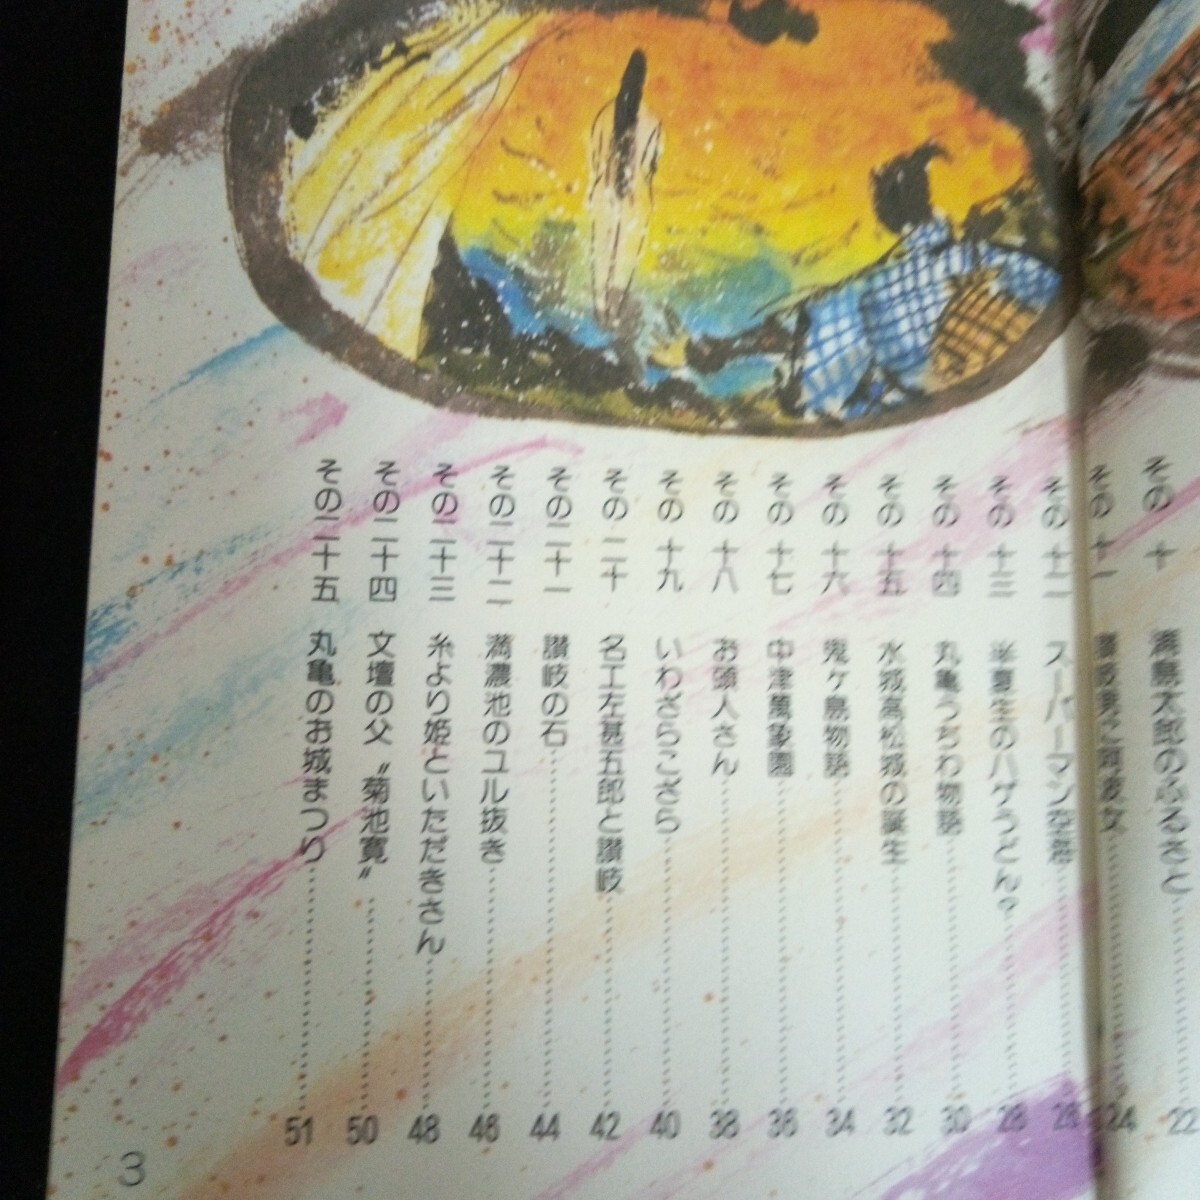 その 十 浦島太郎のふるさと 22
その 十一 讃岐男に阿波女 24
その 十二 スーパーマン空海 26
その 十三 半夏生のハゲうどん。 28
その 十四 丸亀うちわ物語 30
その 十五 水城高松城の誕生 32
その 十六 鬼ヶ島物語 34
その 十七 中津萬象園 36
その 十八 お頭人さん 38
その 十九 いわざらこざら 40
その二十 名工左甚五郎と讃岐 42
その二十一 讃岐の石 44
その二十二 満濃池のユル抜き 46
その二十三 糸より姫といただきさん 48
その二十四 文壇の父〝菊池寛〟 50
その二十五 丸亀のお城まつり 51
3